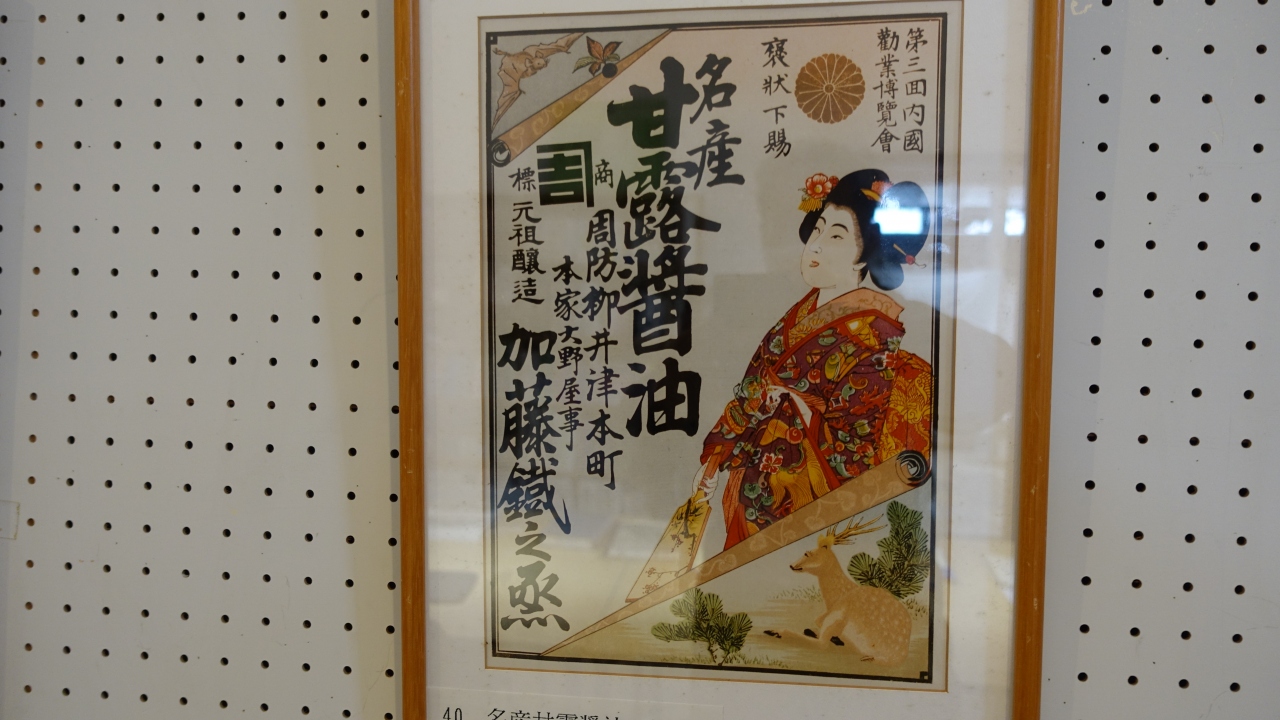 第三回内國
勸業博覽會
褒狀下賜
名産
甘露醬油
商
標
周防柳井津本町
本家大野屋事
元祖釀造
加藤鐡之烝
40 名産甘露醤油